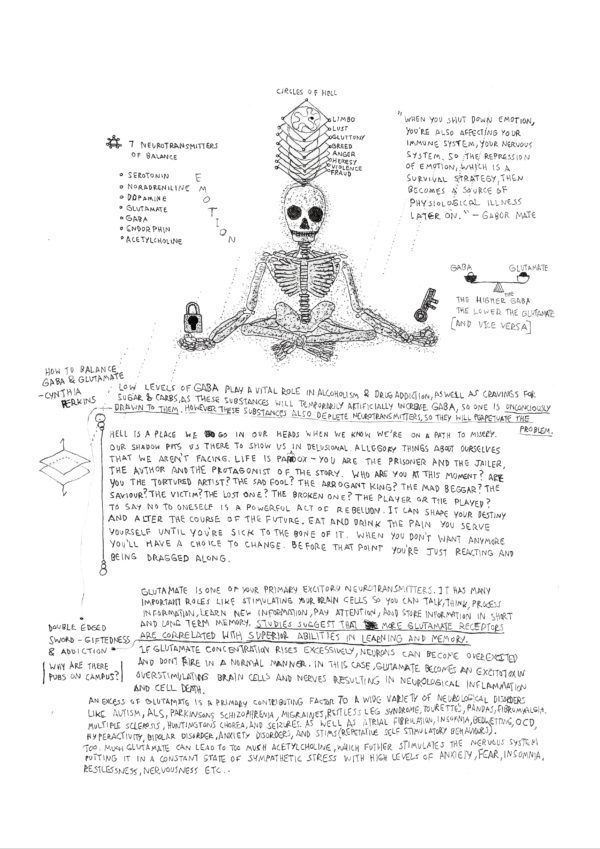 CIRCLES OF HELL
LIMBO
LUST
GLUTTONY
GREED
ANGER
HERESY
VIOLENCE
FRAUD
"WHEN YOU SHUT DOWN EMOTION,
YOU'RE ALSO AFFECTING YOUR
IMMUNE SYSTEM, YOUR NERVOUS
SYSTEM. SO THE REPRESSION
OF EMOTION, WHICH IS A
SURVIVAL STRATEGY, THEN
BECOMES A SOURCE OF
PHYSIOLOGICAL ILLNESS
LATER ON." - GABOR MATE
7 NEUROTRANSMITTERS
OF BALANCE
SEROTONIN
NORADRENILINE
DOPAMINE
GLUTAMATE
GABA
ENDORPHIN
ACETYLCHOLINE
EMOTION
GABA GLUTAMATE
THE HIGHER GABA
THE LOWER THE GLUTAMATE
[AND VICE VERSA]
HOW TO BALANCE
GABA & GLUTAMATE
- CYNTHIA
PERKINS
LOW LEVELS OF GABA PLAY A VITAL ROLE IN ALCOHOLISM & DRUG ADDICTION, AS WELL AS CRAVINGS FOR
SUGAR & CARBS, AS THESE SUBSTANCES WILL TEMPORARILY ARTIFICIALLY INCREASE GABA, SO ONE IS UNCONCIOUSLY
DRAWN TO THEM. HOWEVER THESE SUBSTANCES ALSO DEPLETE NEUROTRANSMITTERS, SO THEY WILL PERPETUATE THE
PROBLEM.
HELL IS A PLACE WE GO IN OUR HEADS WHEN WE KNOW WE'RE ON A PATH TO MISERY.
OUR SHADOW PUTS US THERE TO SHOW US IN DELUSIONAL ALLEGORY THINGS ABOUT OURSELVES
THAT WE AREN'T FACING. LIFE IS PARADOX - YOU ARE THE PRISONER AND THE JAILER,
THE AUTHOR AND THE PROTAGONIST OF THE STORY. WHO ARE YOU AT THIS MOMENT? ARE
YOU THE TORTURED ARTIST? THE SAD FOOL? THE ARROGANT KING? THE MAD BEGGAR? THE
SAVIOUR? THE VICTIM? THE LOST ONE? THE BROKEN ONE? THE PLAYER OR THE PLAYED?
TO SAY NO TO ONESELF IS A POWERFUL ACT OF REBELLION. IT CAN SHAPE YOUR DESTINY
AND ALTER THE COURSE OF THE FUTURE. EAT AND DRINK THE PAIN YOU SERVE
YOURSELF UNTIL YOU'RE SICK TO THE BONE OF IT. WHEN YOU DON'T WANT ANYMORE
YOU'LL HAVE A CHOICE TO CHANGE. BEFORE THAT POINT YOU'RE JUST REACTING AND
BEING DRAGGED ALONG.
GLUTAMATE IS ONE OF YOUR PRIMARY EXCITORY NEUROTRANSMITTERS. IT HAS MANY
IMPORTANT ROLES LIKE STIMULATING YOUR BRAIN CELLS SO YOU CAN TALK, THINK, PROCESS
INFORMATION, LEARN NEW INFORMATION, PAY ATTENTION, AND STORE INFORMATION IN SHORT
AND LONG TERM MEMORY. STUDIES SUGGEST THAT MORE GLUTAMATE RECEPTORS
ARE CORRELATED WITH SUPERIOR ABILITIES IN LEARNING AND MEMORY.
DOUBLE EDGED
SWORD - GIFTEDNESS
& ADDICTION
[WHY ARE THERE
PUBS ON CAMPUS?]
IF GLUTAMATE CONCENTRATION RISES EXCESSIVELY, NEURONS CAN BECOME OVEREXCITED
AND DON'T FIRE IN A NORMAL MANNER. IN THIS CASE, GLUTAMATE BECOMES AN EXCITOTOXIN
OVERSTIMULATING BRAIN CELLS AND NERVES RESULTING IN NEUROLOGICAL INFLAMMATION
AND CELL DEATH.
AN EXCESS OF GLUTAMATE IS A PRIMARY CONTRIBUTING FACTOR TO A WIDE VARIETY OF NEUROLOGICAL DISORDERS
LIKE AUTISM, ALS, PARKINSONS, SCHIZOPHRENIA, MIGRAINES, RESTLESS LEG SYNDROME, TOURETTE'S, PANDAS, FIBROMYALGIA,
MULTIPLE SCLEROSIS, HUNTINGTONS CHOREA, AND SEIZURES. AS WELL AS ATRIAL FIBRILLATION, INSOMNIA, BEDWETTING, OCD,
HYPERACTIVITY, BIPOLAR DISORDER, ANXIETY DISORDERS, AND STIMS (REPETATIVE SELF STIMULATORY BEHAVIOURS).
TOO MUCH GLUTAMATE CAN LEAD TO TOO MUCH ACETYLCHOLINE, WHICH FUTHER STIMULATES THE NERVOUS SYSTEM
PUTTING IT IN A CONSTANT STATE OF SYMPATHETIC STRESS WITH HIGH LEVELS OF ANXIETY, FEAR, INSOMNIA,
RESTLESSNESS, NERVOUSNESS ETC..